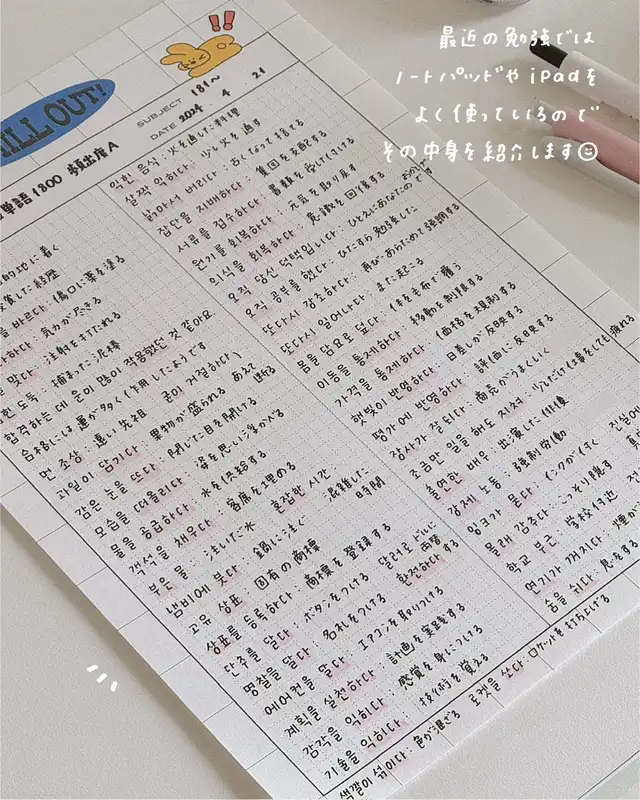 最近の勉強では
ノートパッドや iPadを
よく使っているので
その中身を紹介します
!!
ILL OUT!
SUBJECT 181〜
DATE 2024 4 21
単語1800 頻出度A
的地に着く
바르다: 傷口に薬を塗る
하다: 気力が尽きる
맞다: 注射をうたれる
힌 도둑: 捕まった泥棒
합격하는 데 운이 많이 작용했던 것 같아요
合格には運が多く作用したようです
먼 조상: 遠い先祖
과일이 담기다: 果物が盛られる
굳이 거절하다: あえて断る
감은 눈을 뜨다: 閉じた目を開ける
모습을 떠올리다: 姿を思い浮かべる
물을 공급하다: 水を供給する
객석을 채우다: 客席を埋める
부은 물: 注いだ水
혼잡한 시간: 混雑した時間
냄비에 붓다: 鍋に注ぐ
고유 상표: 固有の商標
상표를 등록하다: 商標を登録する
단추를 달다: ボタンをつける
명찰을 달다: 名札をつける
에어컨을 달다: エアコンを取りつける
계획을 실천하다: 計画を実践する
감각을 익히다: 感覚を身につける
기술을 익히다: 技術を覚える
익힌 음식: 火を通した料理
살짝 익히다: 少し火を通す
낡아서 버리다: 古くなって捨てる
집단을 지배하다: 集団を支配する
서류를 접수하다: 書類を受け付ける
원기를 회복하다: 元気を取り戻す
의식을 회복하다: 意識を回復する
오직 당신 덕택입니다: ひとえにあなたのおかげ
오직 공부를 했다: ひたすら勉強した
또다시 강조하다: 再びあらためて強調する
또다시 일어나다: また起こる
몸을 담요로 덮다: 体を毛布で覆う
이동을 통제하다: 移動を制限する
가격을 통제하다: 価格を規制する
햇빛이 반영하다: 日差しが反映する
평가에 반영하다: 評価に反映する
장사가 잘되다: 商売がうまくいく
조금만 일을 해도 지쳐: 少しだけ仕事をしても疲れる
출연한 배우: 出演した俳優
강제 노동: 強制労働
잉크가 묻다: インクが付く
몰래 감추다: こっそり隠す
학교 부근: 学校付近
연기가 꺼지다: 煙が
숨을 쉬다: 息をする
색깔이 섞이다: 色が混ざる
로켓을 쏘다: ロケットを打ち上げる